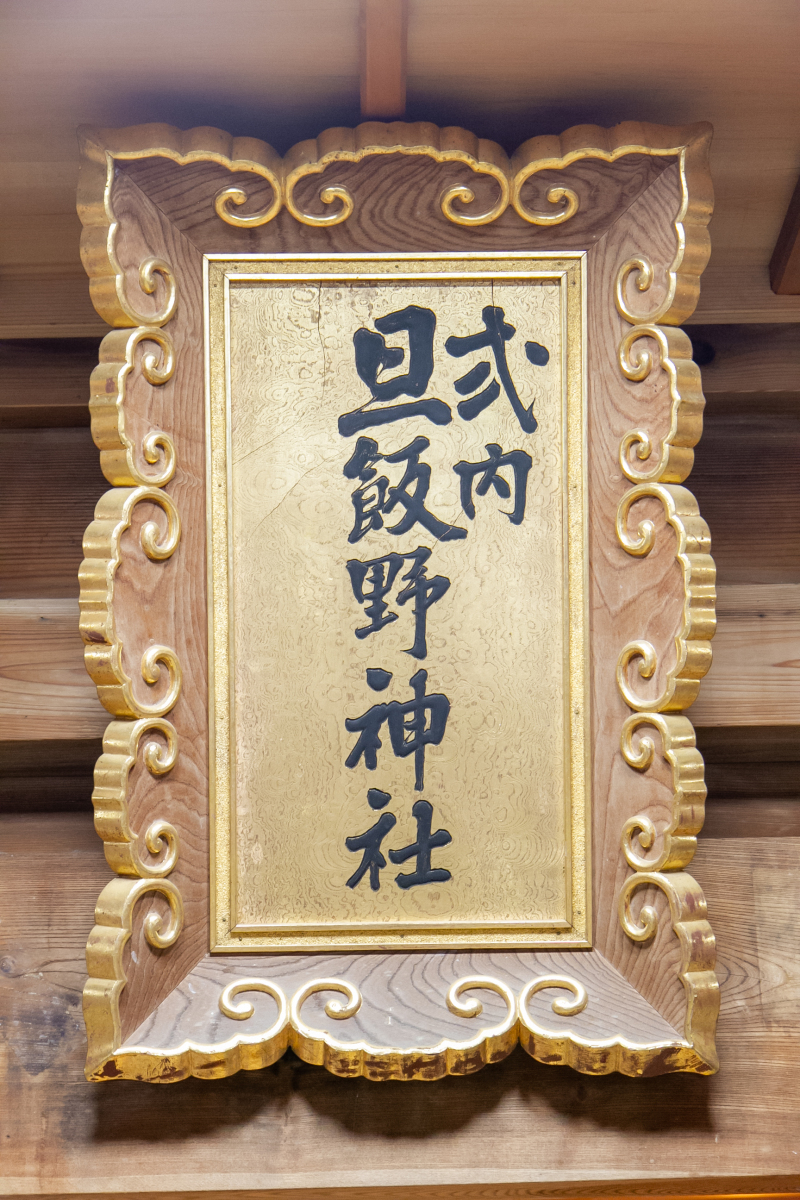 式内
旦飯野神社